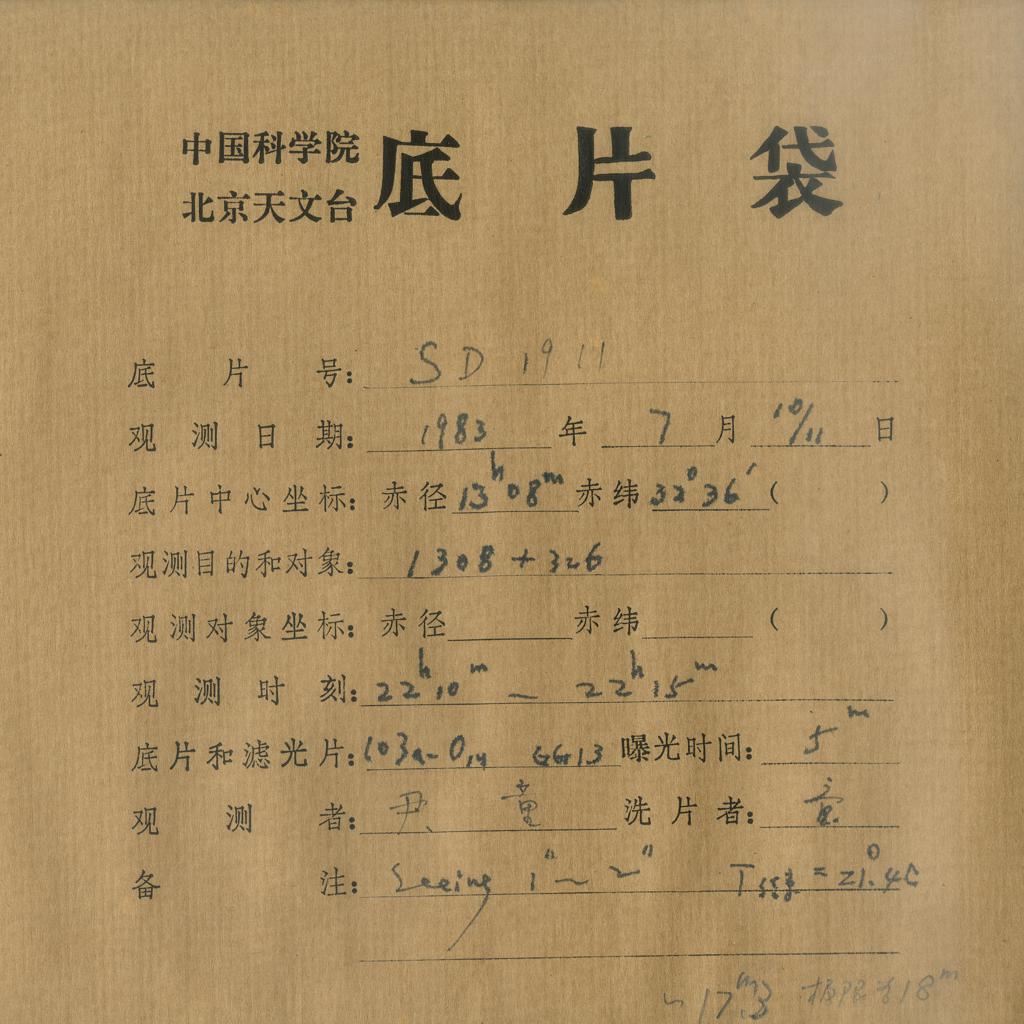 中国科学院
北京天文台
底片袋
底片号: SD 1911
观测日期: 1983 年 7 月 10/11 日
底片中心坐标: 赤径 13ʰ08ᵐ 赤纬 32°36′ ( )
观测目的和对象: 1308+326
观测对象坐标: 赤径 赤纬 ( )
观测时刻: 22ʰ10ᵐ — 22ʰ15ᵐ
底片和滤光片: 103a-O, GG13 曝光时间: 5ᵐ
观测者: 尹、童 洗片者: 童
备注: Seeing 1″~2″ T = 21°.4C
~17ᵐ.3 极限为18ᵐ